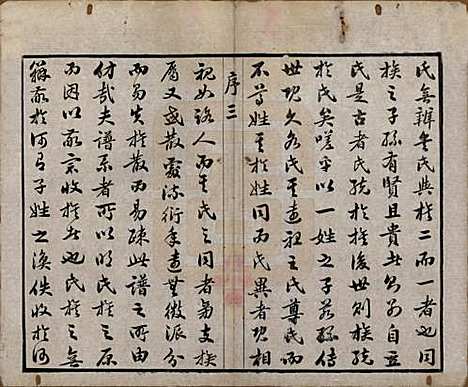 氏無辨矣氏與族二而一者也同
族之子孫有賢且貴出則別自立
氏是古者氏統於族後世則族統
於氏矣嗟乎以一姓之子孫傳
世既久各氏其遠祖之氏尊氏而
不尊姓其於姓同而氏異者視相
序三
視如路人而其氏之同者易支族
屬又或散處流衍年遠世微派分
而易失於散而易疎此譜之所由
作哉夫譜系者所以明氏族之原
而因以敬宗收族者也氏之無
辭於河而子姓之渙佚收於何